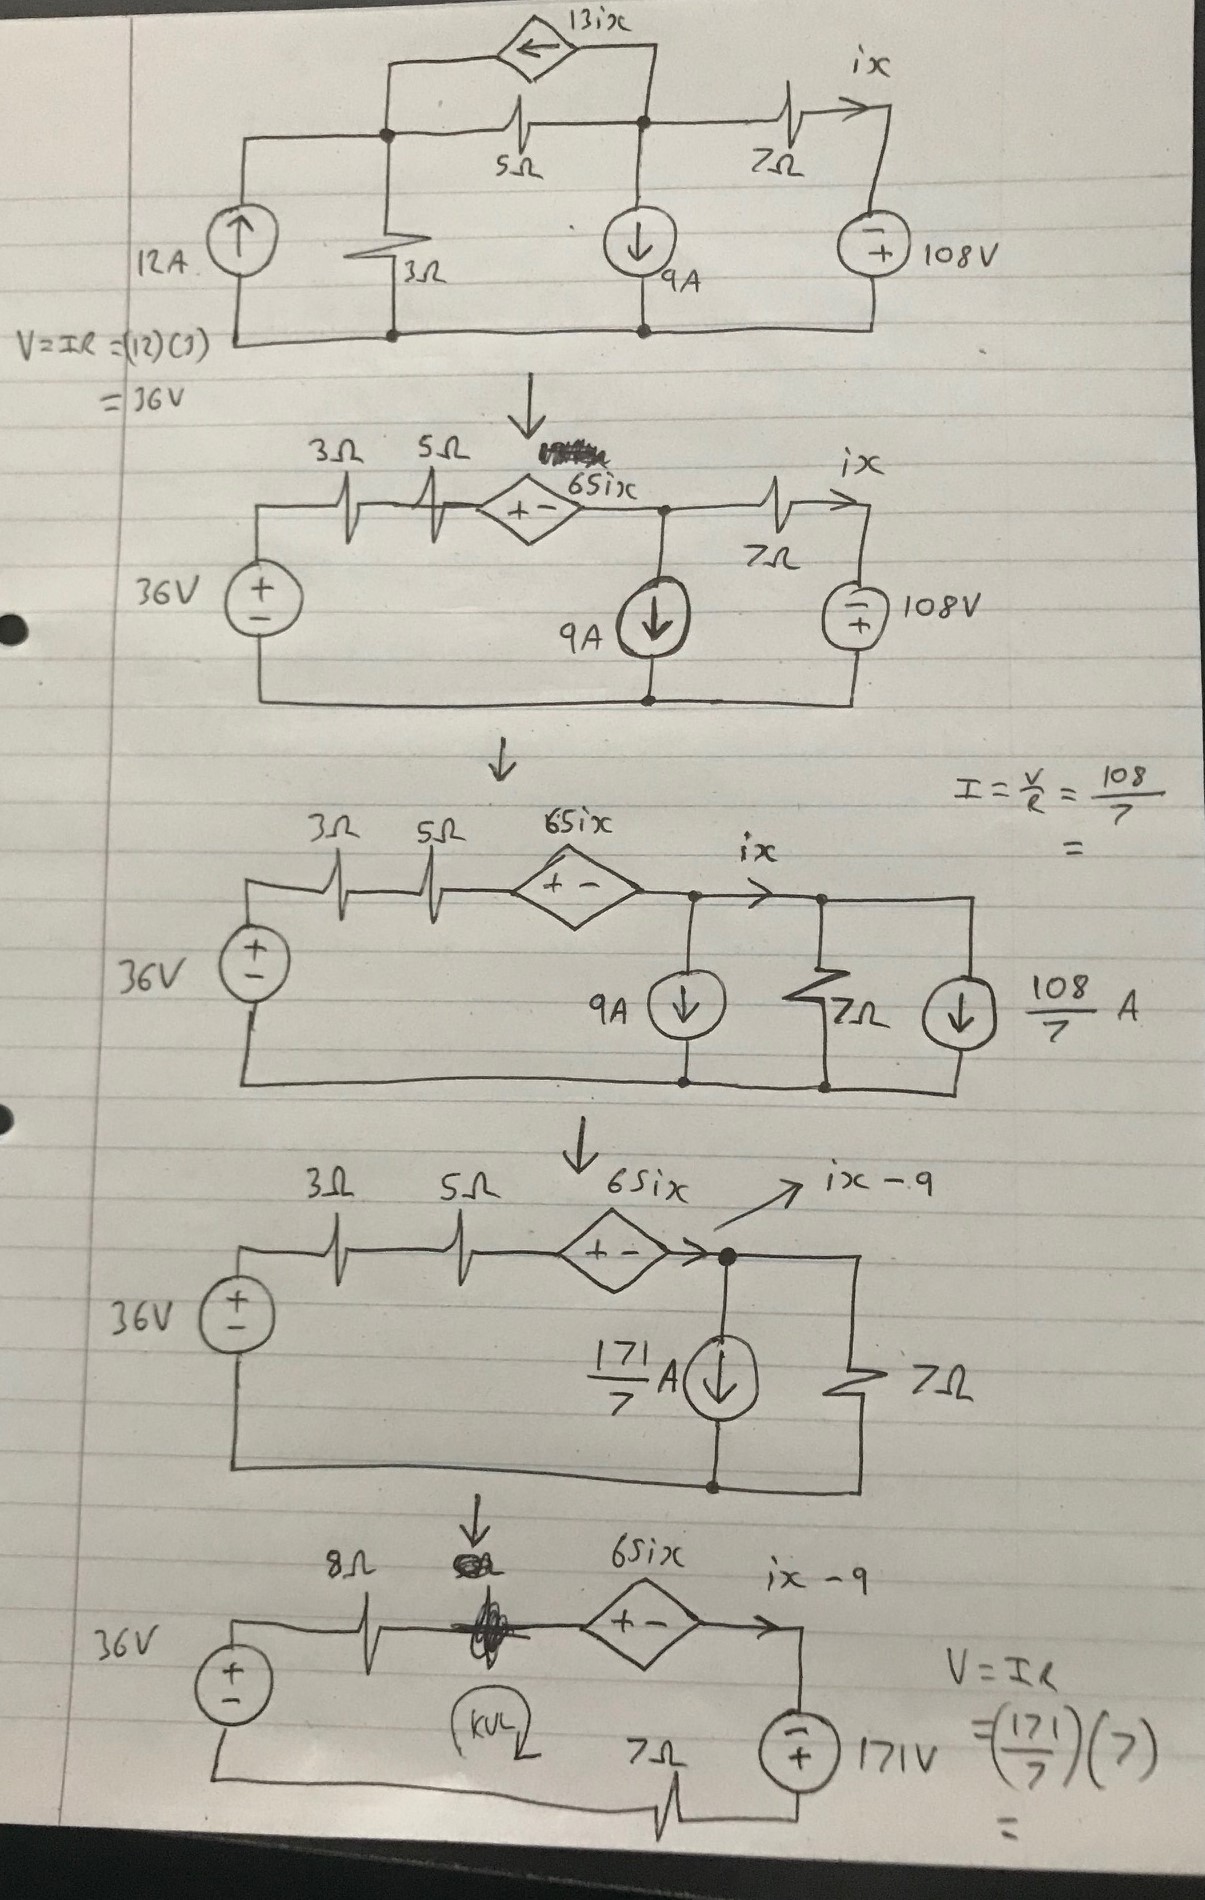 13ix
ix
5Ω
7Ω
12A
3Ω
9A
- +
108V
V=IR =(12)(3)
= 36V
3Ω 5Ω
65ix
ix
+ -
7Ω
36V
+ -
9A
- +
108V
I = V/R = 108/7
=
3Ω 5Ω 65ix
ix
+ -
36V
+ -
9A
7Ω
108/7 A
3Ω 5Ω 65ix
ix - 9
+ -
36V
+ -
171/7 A
7Ω
8Ω
65ix
ix - 9
+ -
36V
+ -
KVL
7Ω
- +
171V
V = IR
=(171/7)(7)
=